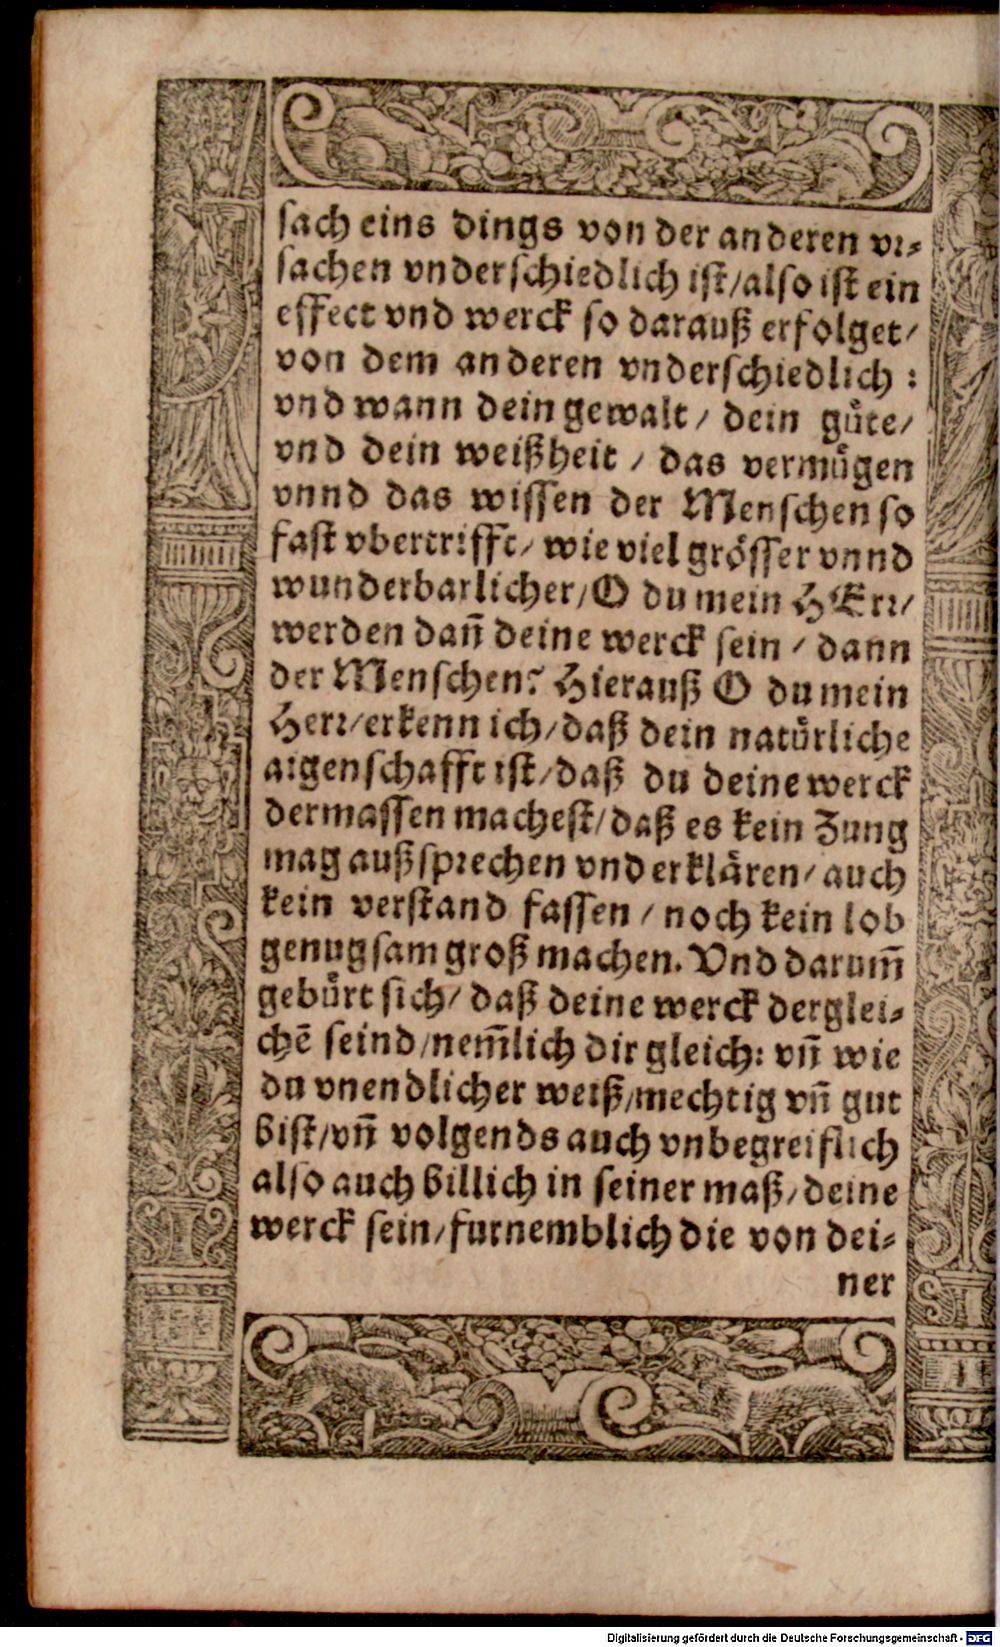 sach eins dings von der anderen vr-
sachen vnderschiedlich ist/also ist ein
effect vnd werck so darauß erfolget/
von dem anderen vnderschiedlich :
vnd wann dein gewalt/ dein guͤte/
vnd dein weißheit / das vermuͤgen
vnnd das wissen der Menschen so
fast vbertrifft/ wie viel groͤsser vnnd
wunderbarlicher/O du mein HErr/
werden dañ deine werck sein / dann
der Menschen? Hierauß O du mein
Herr/erkenn ich/daß dein natuͤrliche
aigenschafft ist/daß du deine werck
dermassen machest/daß es kein Zung
mag außsprechen vnd erklaͤren/ auch
kein verstand fassen / noch kein lob
genugsam groß machen. Vnd darum̃
gebuͤrt sich/ daß deine werck derglei-
chẽ seind/nem̃lich dir gleich: vñ wie
du vnendlicher weiß/mechtig vñ gut
bist/vñ volgends auch vnbegreiflich
also auch billich in seiner maß/deine
werck sein/furnemblich die von dei-
ner
Digitalisierung gefördert durch die Deutsche Forschungsgemeinschaft - DFG